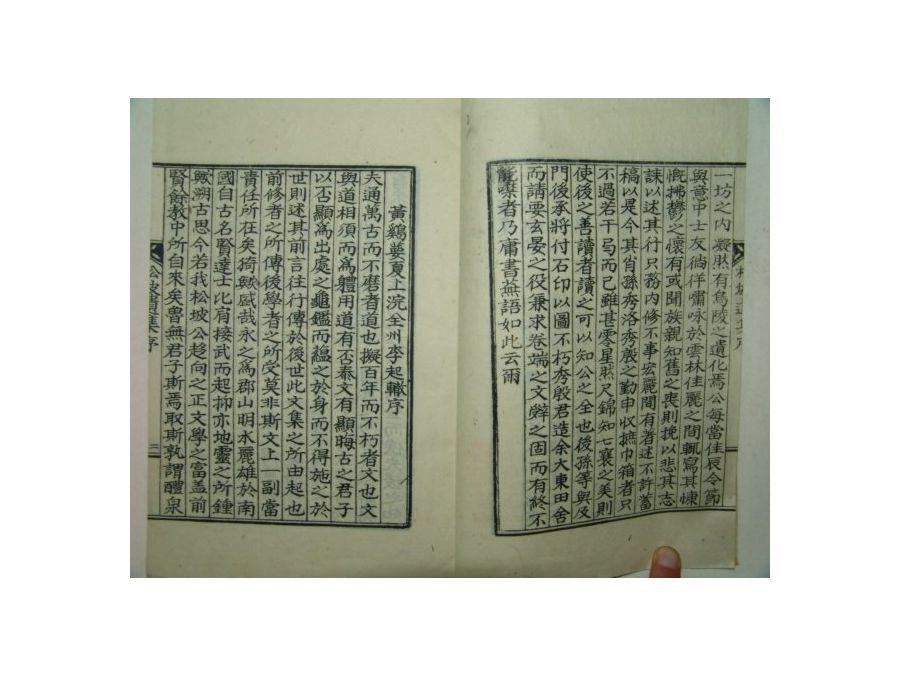 一坊之內凝然有烏陵之遺化焉公每當佳辰令節
與意中士友徜徉嘯咏於雲林佳麗之間輒寫其慷
慨拂鬱之懷有或聞族親知舊之喪則挽以悲其志
誄以述其行只務內修不事宏麗間有著述不許蓄
稿以是今其肖孫秀洛秀殷之勤申收摭巾箱者只
不過若干弓而已雖甚零星然尺錦知七襄之美則
使後之善讀者讀之可以知公之全也後孫等與及
門後承將付石印以圖不朽秀殷君造余大東田舍
而請要玄晏之役兼求卷端之文辭之固而有終不
能嘿者乃庸書蕪語如此云爾
黃鷄蔞夏上浣全州李起轍序
夫通萬古而不磨者道也擬百年而不朽者文也文
與道相須而爲軆用道有否泰文有顯晦古之君子
以否顯爲出處之龜鑑而蘊之於身而不得施之於
世則述其前言往行傳於後世此文集之所由起也
前修者之所傳後學者之所受莫非斯文上一副當
責任所在矣猗歟盛哉永之爲郡山明水麗雄於南
國自古名賢達士比肩接武而起抑亦地靈之所鍾
歟溯古思今若我松坡公趍向之正文學之富盖前
賢餘敎中所自來矣曾無君子斯焉取斯孰謂醴泉
松坡遺集序
三